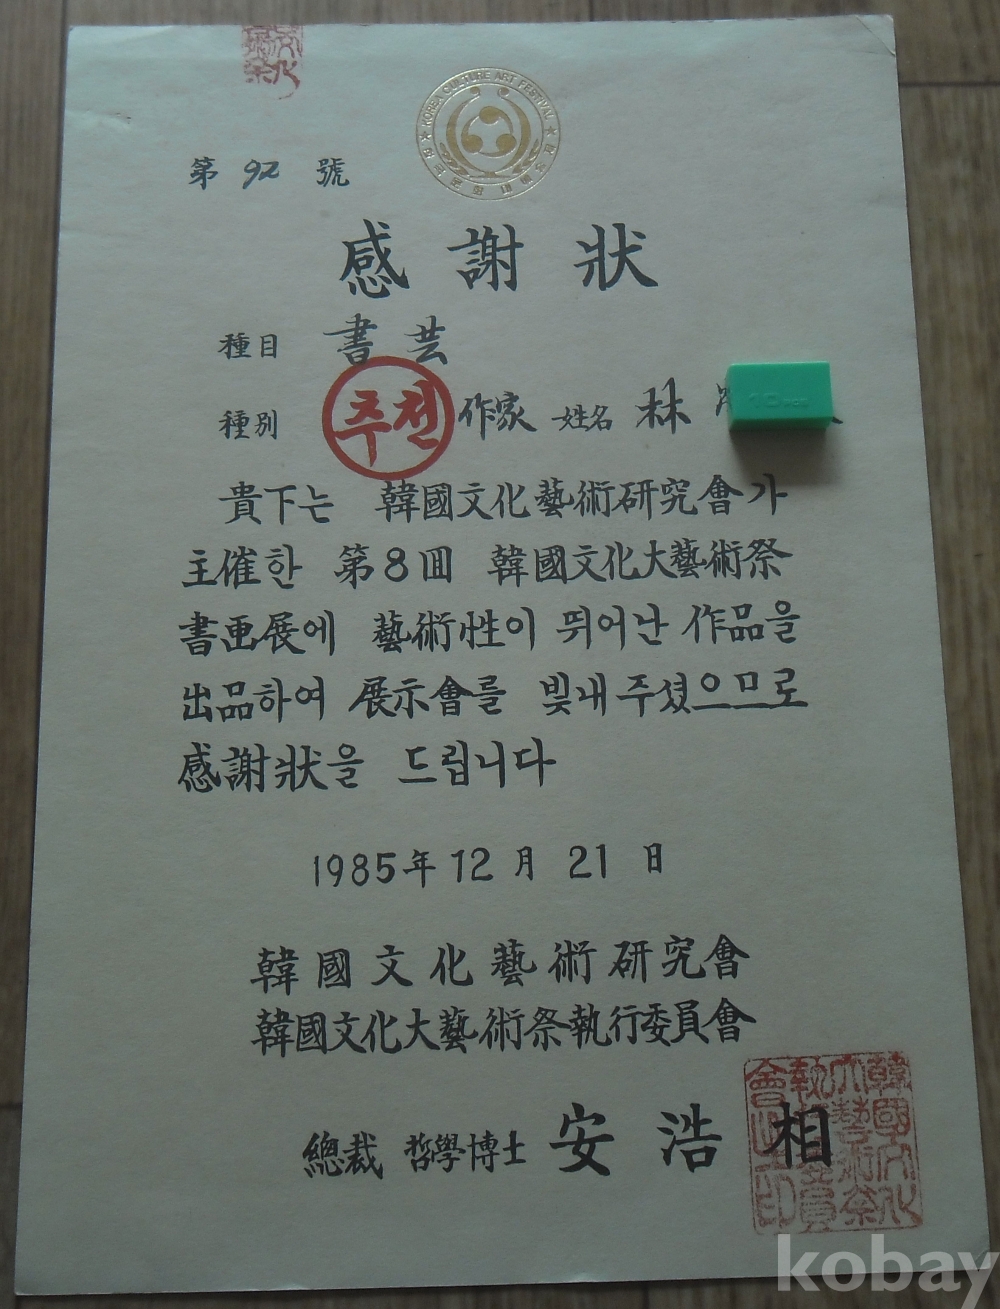 KOREA CULTURE ART FESTIVAL
第 92 號
感謝狀
種目 書芸
種別 추천 作家 姓名 林
貴下는 韓國文化藝術硏究會가
主催한 第8回 韓國文化大藝術祭
書画展에 藝術性이 뛰어난 作品을
出品하여 展示會를 빛내주셨으므로
感謝狀을 드립니다
1985年 12月 21日
韓國文化藝術硏究會
韓國文化大藝術祭執行委員會
總裁 哲學博士 安浩相
kobay